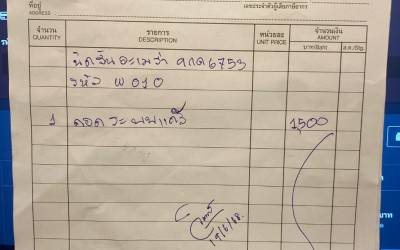 ที่อยู่
ADDRESS
เลขประจำตัวผู้เสียภาษีอากร
จำนวน
QUANTITY
รายการ
DESCRIPTION
หน่วยละ
UNIT PRICE
จำนวนเงิน
AMOUNT
บาท/Baht
ส.ต./Stg.
6753
รหัส W010
1 ถอดระบบแก๊ส 1,500
19/6/68
บาท